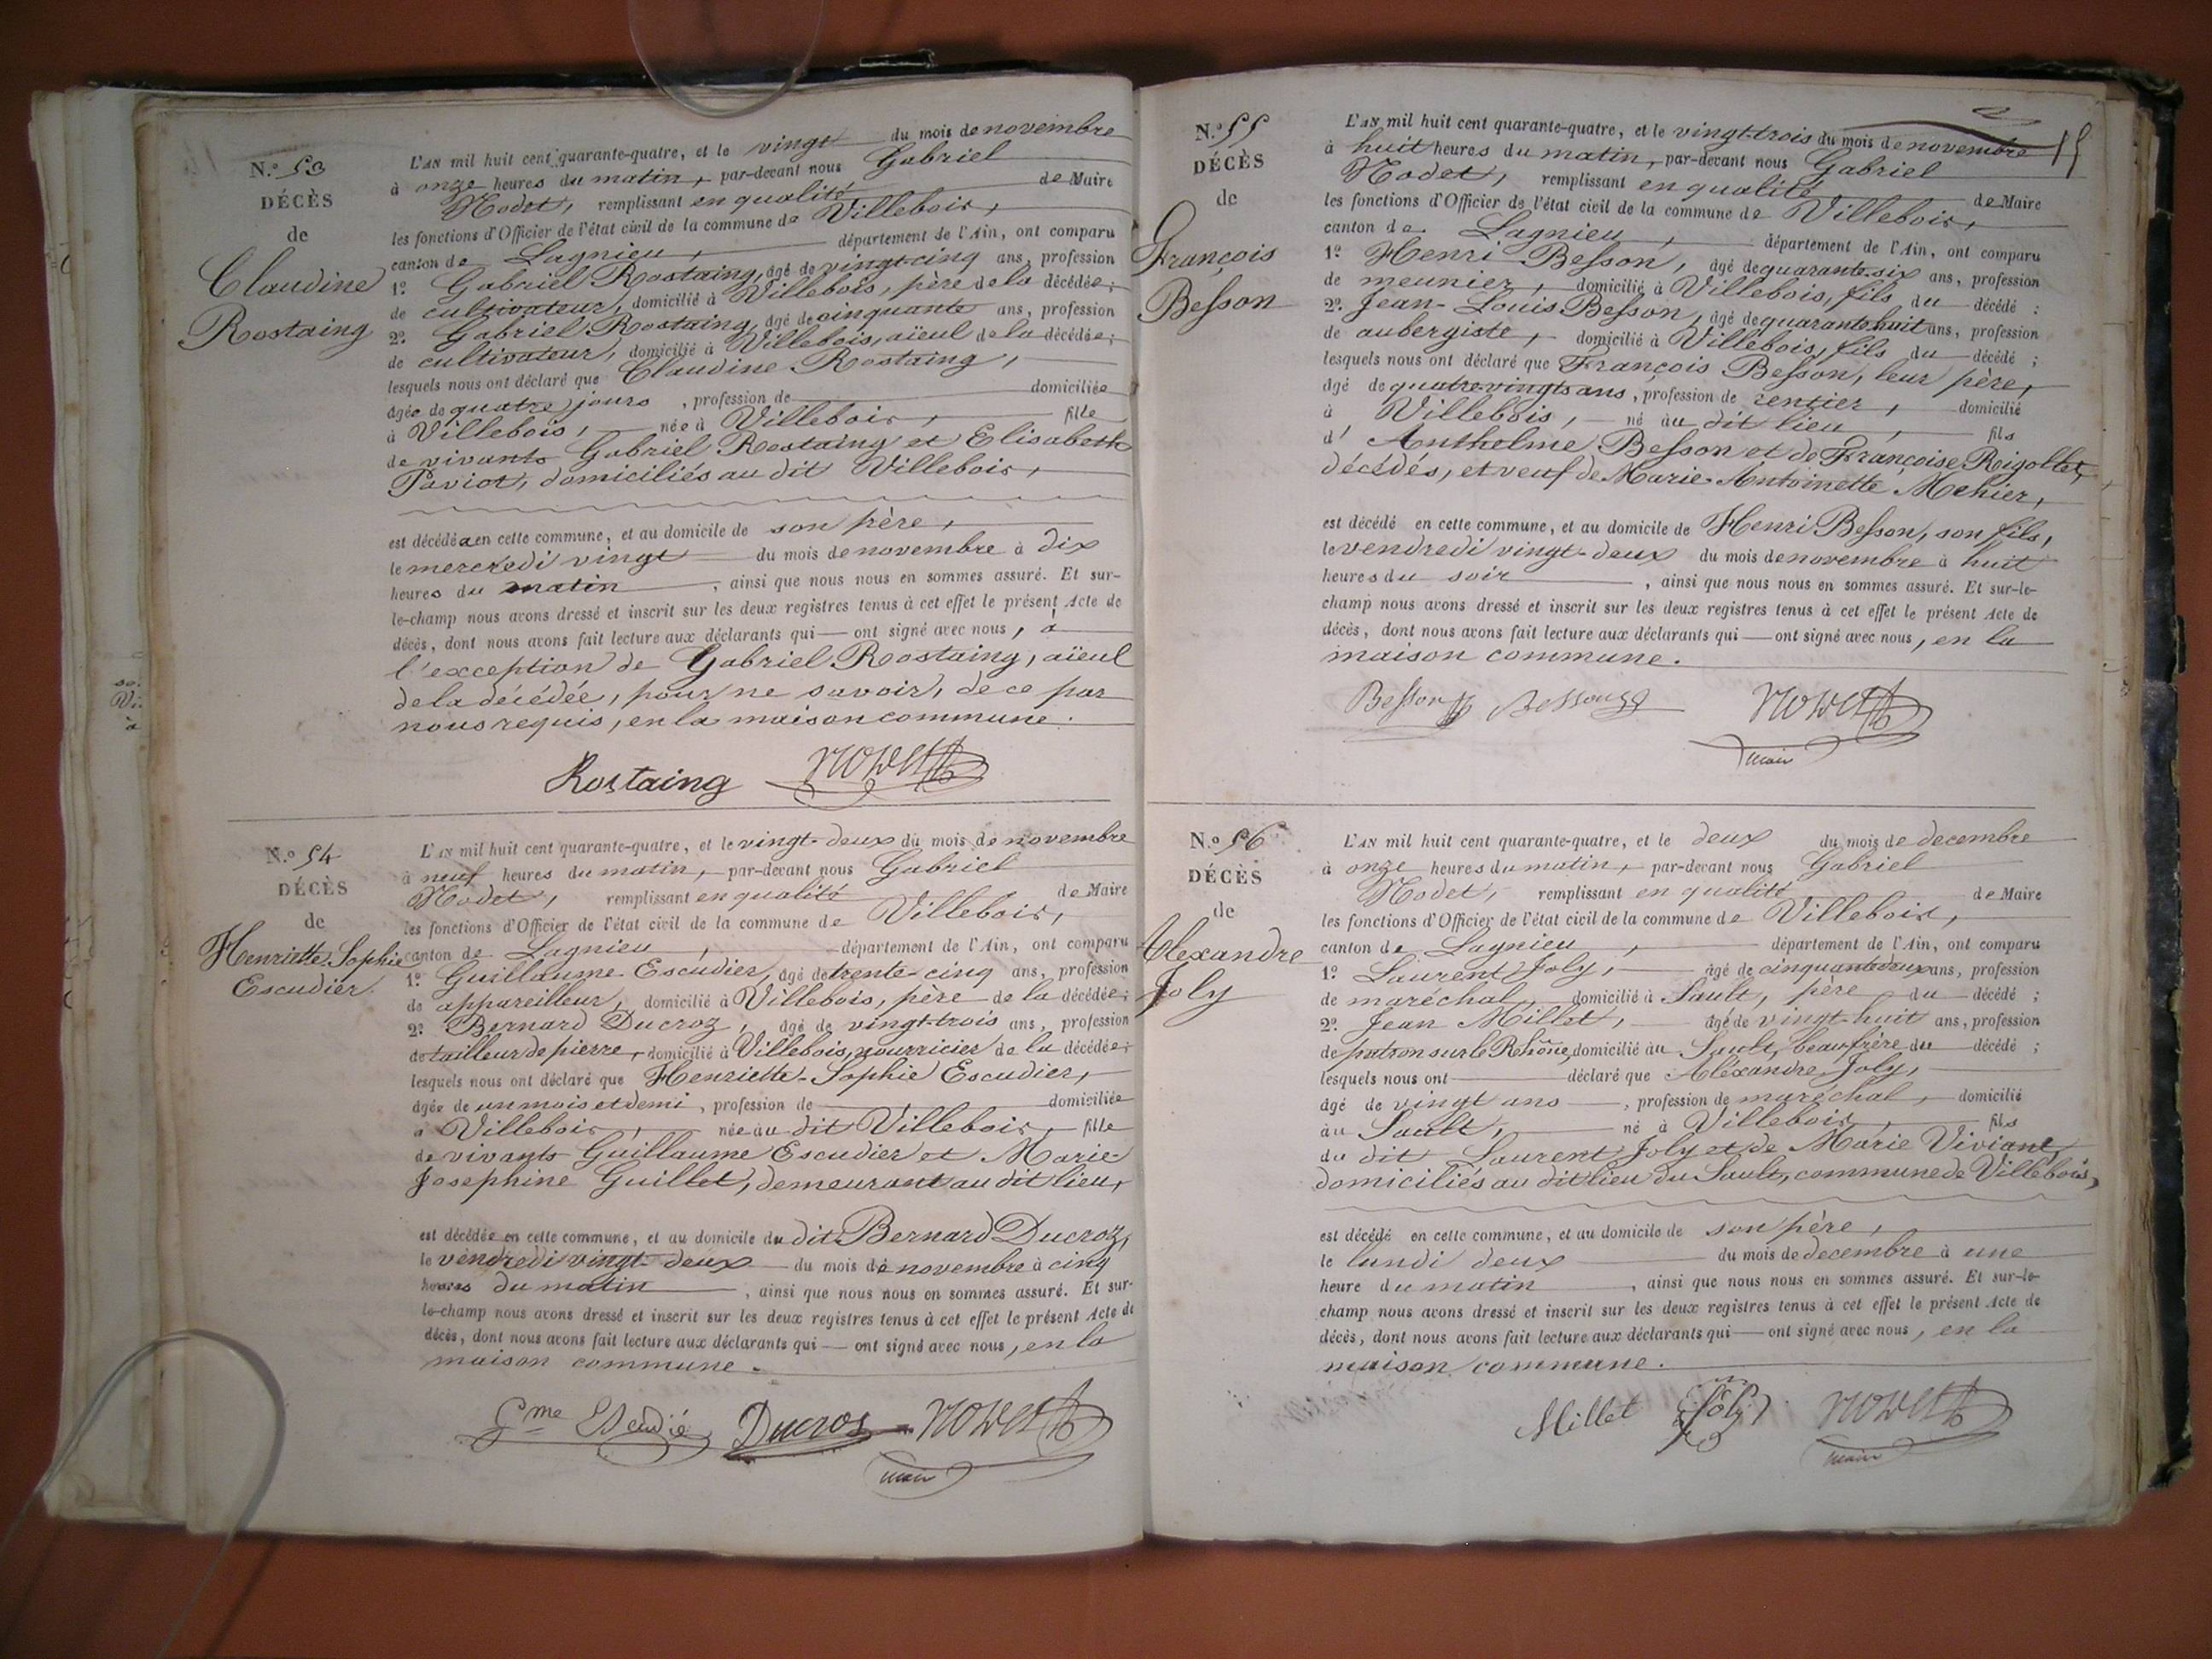 N.º 53
DÉCÈS
de
Claudine
Rostaing
L'AN mil huit cent quarante-quatre, et le vingt du mois de novembre
à onze heures du matin, par-devant nous Gabriel
Nodet, remplissant en qualité de Maire
les fonctions d'Officier de l'état civil de la commune de Villebois,
canton de Lagnieu, département de l'Ain, ont comparu
1º Gabriel Rostaing, âgé de vingt-cinq ans, profession
de cultivateur, domicilié à Villebois, père de la décédée;
2º Gabriel Rostaing, âgé de cinquante ans, profession
de cultivateur, domicilié à Villebois, aïeul de la décédée;
lesquels nous ont déclaré que Claudine Rostaing,
âgée de quatre jours, profession de domiciliée
à Villebois, née à Villebois, fille
de vivants Gabriel Rostaing et Elisabeth
Paviot, domiciliés au dit Villebois,
est décédée en cette commune, et au domicile de son père,
le mercredi vingt du mois de novembre à dix
heures du matin, ainsi que nous nous en sommes assuré. Et sur-
le-champ nous avons dressé et inscrit sur les deux registres tenus à cet effet le présent Acte de
décès, dont nous avons fait lecture aux déclarants qui — ont signé avec nous, à
l'exception de Gabriel Rostaing, aïeul
de la décédée, pour ne savoir, de ce par
nous requis, en la maison commune.
Rostaing Nodet
N.º 54
DÉCÈS
de
Henriette Sophie
Escudier.
L'AN mil huit cent quarante-quatre, et le vingt-deux du mois de novembre
à neuf heures du matin, par-devant nous Gabriel
Nodet, remplissant en qualité de Maire
les fonctions d'Officier de l'état civil de la commune de Villebois,
canton de Lagnieu, département de l'Ain, ont comparu
1º Guillaume Escudier, âgé de trente-cinq ans, profession
de appareilleur, domicilié à Villebois, père de la décédée;
2º Bernard Ducroz, âgé de vingt-trois ans, profession
de tailleur de pierre, domicilié à Villebois, nourricier de la décédée;
lesquels nous ont déclaré que Henriette-Sophie Escudier,
âgée de un mois et demi, profession de domiciliée
à Villebois, née au dit Villebois, fille
de vivants Guillaume Escudier et Marie-
Josephine Guillet, demeurant au dit lieu,
est décédée en cette commune, et au domicile du dit Bernard Ducroz,
le vendredi vingt-deux du mois de novembre à cinq
heures du matin, ainsi que nous nous en sommes assuré. Et sur-
le-champ nous avons dressé et inscrit sur les deux registres tenus à cet effet le présent Acte de
décès, dont nous avons fait lecture aux déclarants qui — ont signé avec nous, en la
maison commune.
Gme Escudié Ducros Nodet
maire
15
N.º 55
DÉCÈS
de
François
Besson
L'AN mil huit cent quarante-quatre, et le vingt-trois du mois de novembre
à huit heures du matin, par-devant nous Gabriel
Nodet, remplissant en qualité de Maire
les fonctions d'Officier de l'état civil de la commune de Villebois,
canton de Lagnieu, département de l'Ain, ont comparu
1º Henri Besson, âgé de quarante-six ans, profession
de meunier, domicilié à Villebois, fils du décédé;
2º Jean-Louis Besson, âgé de quarante huit ans, profession
de aubergiste, domicilié à Villebois, fils du décédé;
lesquels nous ont déclaré que François Besson, leur père,
âgé de quatre-vingts ans, profession de rentier, domicilié
à Villebois, né au dit lieu, fils
d' Anthelme Besson et de Françoise Rigollet,
décédés, et veuf de Marie-Antoinette Mehier,
est décédé en cette commune, et au domicile de Henri Besson, son fils,
le vendredi vingt-deux du mois de novembre à huit
heures du soir, ainsi que nous nous en sommes assuré. Et sur-le-
champ nous avons dressé et inscrit sur les deux registres tenus à cet effet le présent Acte de
décès, dont nous avons fait lecture aux déclarants qui — ont signé avec nous, en la
maison commune.
Besson Besson Nodet
maire
N.º 56
DÉCÈS
de
Alexandre
Joly
L'AN mil huit cent quarante-quatre, et le deux du mois de decembre
à onze heures du matin, par-devant nous Gabriel
Nodet, remplissant en qualité de Maire
les fonctions d'Officier de l'état civil de la commune de Villebois,
canton de Lagnieu, département de l'Ain, ont comparu
1º Laurent Joly, âgé de cinquante deux ans, profession
de maréchal, domicilié à Sault, père du décédé;
2º Jean Millet, âgé de vingt-huit ans, profession
de patron sur le Rhône, domicilié au Sault, beau-frère du décédé;
lesquels nous ont déclaré que Aléxandre Joly,
âgé de vingt ans, profession de maréchal, domicilié
au Sault, né à Villebois, fils
du dit Laurent Joly et de Marie Viviant,
domiciliés au dit lieu du Sault, commune de Villebois,
est décédé en cette commune, et au domicile de son père,
le lundi deux du mois de decembre à une
heure du matin, ainsi que nous nous en sommes assuré. Et sur-le-
champ nous avons dressé et inscrit sur les deux registres tenus à cet effet le présent Acte de
décès, dont nous avons fait lecture aux déclarants qui — ont signé avec nous, en la
maison commune.
Millet Joly Nodet
maire